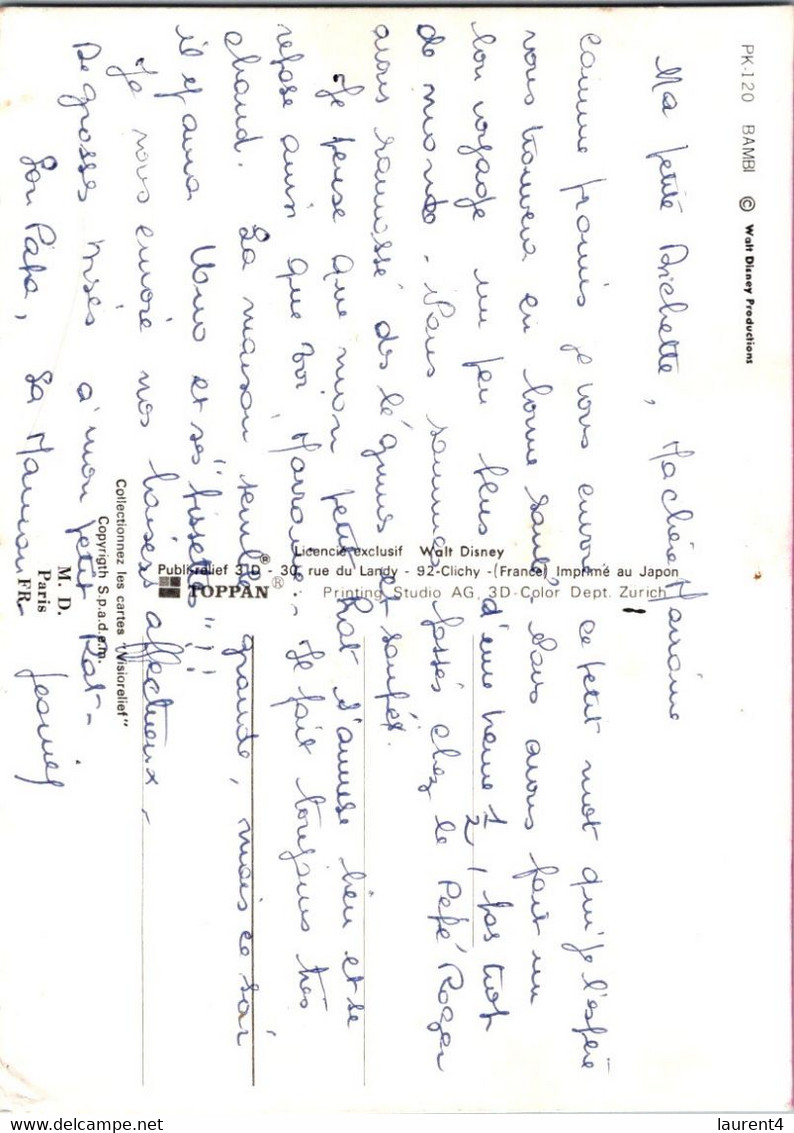 PK-120 BAMBI © Walt Disney Productions
Ma petite Bichette, Ma chère Marraine
Comme promis je vous envoie ce petit mot qui je l'espère
vous trouvera en bonne santé. Nous avons fait un
bon voyage un peu plus d'une heure 1/2, pas trop
de monde. Nous sommes passés chez le Pépé Roger
avons ramassé des légumes et soupé.
Je pense que mon petit Rat s'amuse bien et se
repose ainsi que toi Marraine. Il fait toujours très
chaud. La maison semble grande, mais ce soir
il y aura et ses "
Je vous envoie nos baisers affectueux.
De grosses bises à mon petit Rat.
Son Papa, Sa Maman
Licencié exclusif Walt Disney
Publi-relief 3 D - 30, rue du Landy - 92-Clichy - (France) Imprimé au Japon
TOPPAN® Printing Studio AG, 3D-Color Dept. Zurich
Collectionnez les cartes "Visiorelief"®
Copyrigth S.p.a.d.e.m.
M. D.
Paris
FR.
laurent4